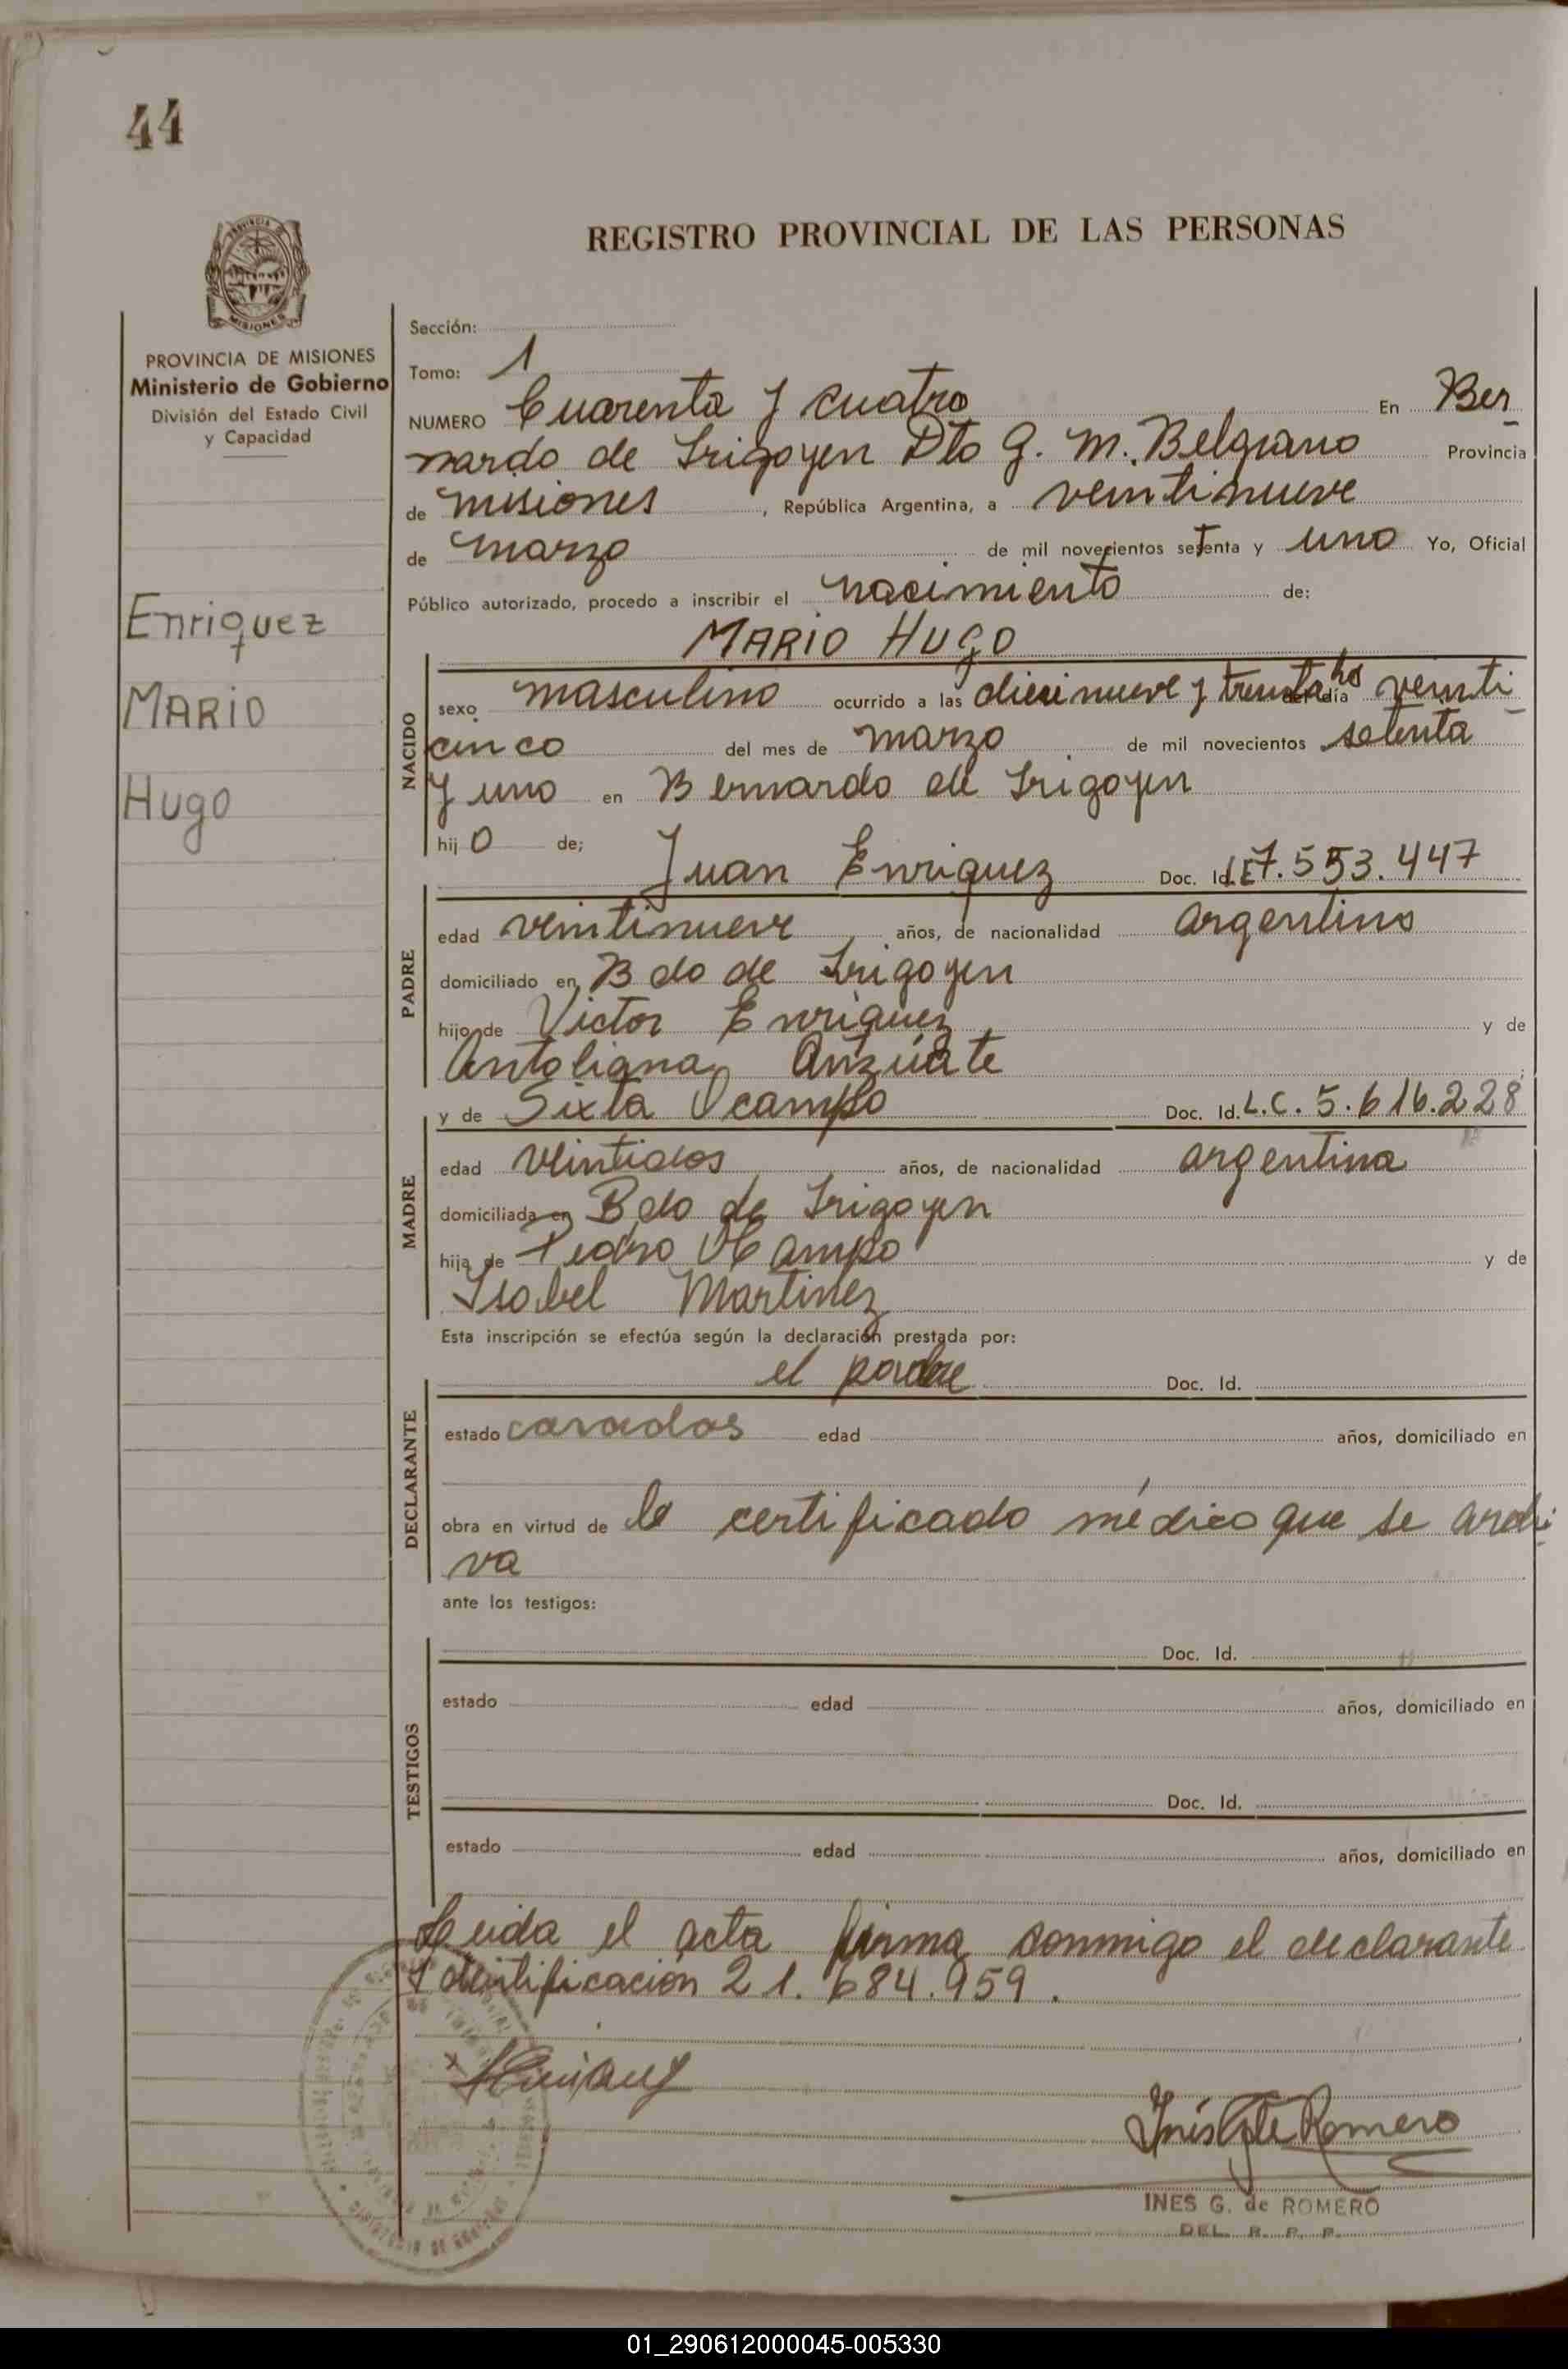 44
REGISTRO PROVINCIAL DE LAS PERSONAS
MISIONES
PROVINCIA DE MISIONES
Ministerio de Gobierno
División del Estado Civil
y Capacidad
Enriquez
MARIO
Hugo
Sección:
Tomo: 1
NUMERO Cuarenta y cuatro En Ber
nardo de Irigoyen Dto G. M. Belgrano Provincia
de misiones, República Argentina, a veintinueve
de marzo de mil novecientos setenta y uno Yo, Oficial
Público autorizado, procedo a inscribir el nacimiento de:
MARIO HUGO
NACIDO
sexo masculino ocurrido a las diecinueve y treinta hs del día veinti
cinco del mes de marzo de mil novecientos setenta
y uno en Bernardo de Irigoyen
hijo de;
Juan Enriquez Doc. Id. L.E 7.553.447
PADRE
edad veintinueve años, de nacionalidad argentino
domiciliado en Bdo de Irigoyen
hijo de Victor Enriquez y de
Antoliana Anzuate
y de Sixta Ocampo Doc. Id. L.C. 5.616.228
MADRE
edad veintidos años, de nacionalidad argentina
domiciliada en Bdo de Irigoyen
hija de Pedro Ocampo y de
Isabel Martinez
Esta inscripción se efectúa según la declaración prestada por:
el padre Doc. Id.
DECLARANTE
estado casados edad años, domiciliado en
obra en virtud de le certificado médico que se archi
va
ante los testigos:
TESTIGOS
Doc. Id.
estado edad años, domiciliado en
Doc. Id.
estado edad años, domiciliado en
Leida el acta firma conmigo el declarante
Identificación 21.684.959.
x
Inés G de Romero
INES G. de ROMERO
DEL. R. P. P.
01_290612000045-005330